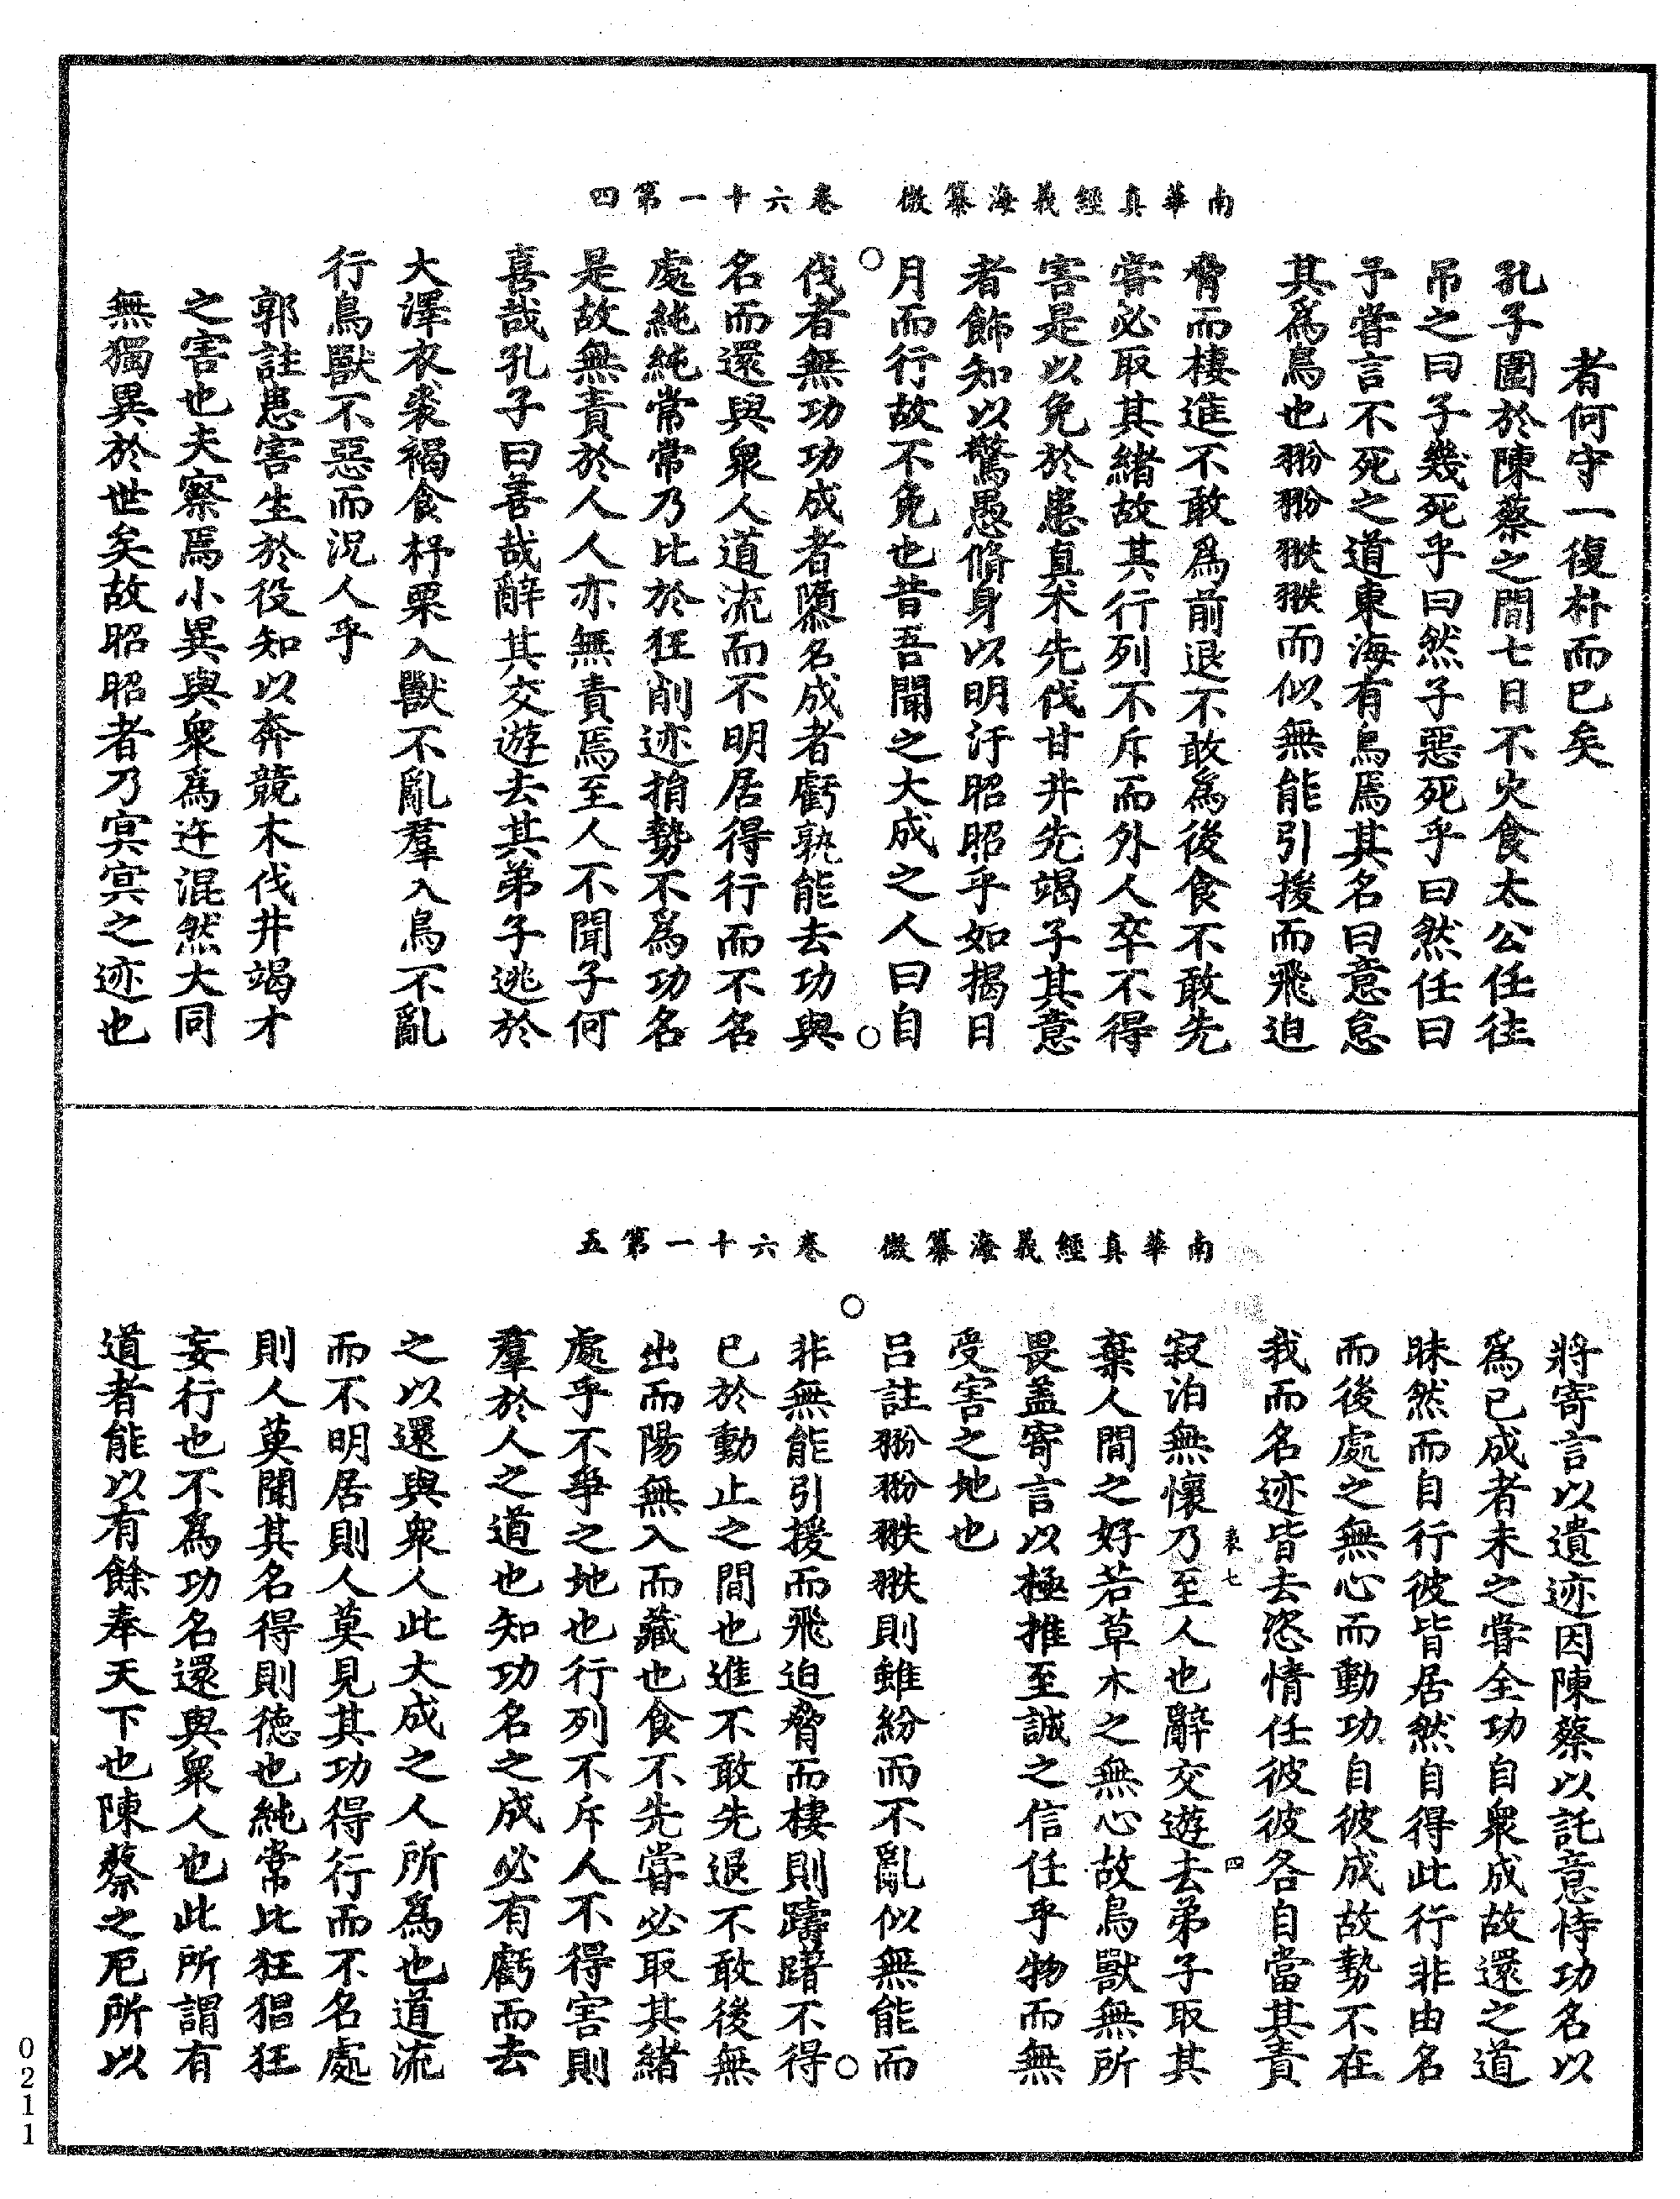 南華真經義海纂微　卷六十一第四
者何守一復朴而已矣
孔子圍於陳蔡之間七日不火食太公任往
吊之曰子幾死乎曰然子惡死乎曰然任曰
予嘗言不死之道東海有鳥焉其名曰意怠
其為鳥也翂翂翐翐而似無能引援而飛迫
脅而棲進不敢為前退不敢為後食不敢先
嘗必取其緒故其行列不斥而外人卒不得
害是以免於患直木先伐甘井先竭子其意
者飾知以驚愚脩身以明汙昭昭乎如揭日
月而行故不免也昔吾聞之大成之人曰自
伐者無功功成者隳名成者虧孰能去功與
名而還與衆人道流而不明居得行而不名
處純純常常乃比於狂削迹捐勢不為功名
是故無責於人人亦無責焉至人不聞子何
喜哉孔子曰善哉辭其交遊去其弟子逃於
大澤衣裘褐食杼栗入獸不亂羣入鳥不亂
行鳥獸不惡而況人乎
郭註患害生於役知以奔競木伐井竭才
之害也夫察焉小異與衆為迕混然大同
無獨異於世矣故昭昭者乃冥冥之迹也
南華真經義海纂微　卷六十一第五
將寄言以遺迹因陳蔡以託意恃功名以
為已成者未之嘗全功自衆成故還之道
昧然而自行彼皆居然自得此行非由名
而後處之無心而動功自彼成故勢不在
我而名迹皆去恣情任彼彼各自當其責
寂泊無懷乃至人也辭交遊去弟子取其
棄人間之好若草木之無心故鳥獸無所
畏盖寄言以極推至誠之信任乎物而無
受害之地也
呂註翂翂翐翐則雖紛而不亂似無能而
非無能引援而飛迫脅而棲則躊躇不得
已於動止之間也進不敢先退不敢後無
出而陽無入而藏也食不先嘗必取其緒
處乎不爭之地也行列不斥人不得害則
羣於人之道也知功名之成必有虧而去
之以還與衆人此大成之人所為也道流
而不明居則人莫見其功得行而不名處
則人莫聞其名得則德也純常比狂猖狂
妄行也不為功名還與衆人也此所謂有
道者能以有餘奉天下也陳蔡之厄所以
表七
四
0211